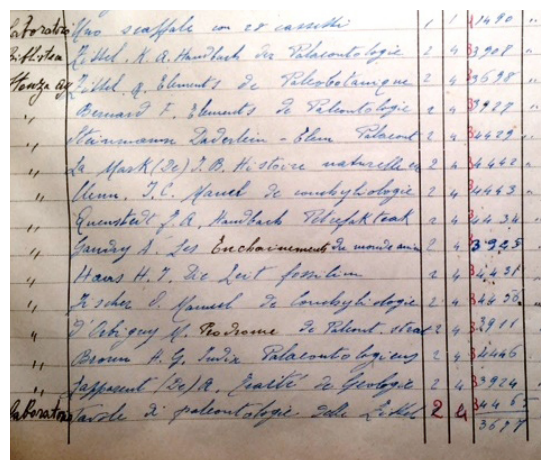 Laboratorio Uno scaffale con 28 cassetti 1 1 1490 "
Biblioteca Zittel K. A. Handbuch der Palaeontologie 2 4 3908 "
Stanza Zittel A. Elements de Paleobotanique 2 4 3698 "
" Bernard F. Elements de Paleontologie 2 4 3927 "
" Steinmann Döderlein - Elem Palaeont 2 4 4429 "
" La Mark (De) J. B. Histoire naturelle 2 4 4442 "
" Chenu. J. C. Manuel de conchyliologie 2 4 4443 "
" Quenstedt F. A. Handbuch Petrefakteuk 2 4 4434 "
" Gaudry A. Les Enchainements du monde anim 2 4 3925 "
" Haas H. J. Die Leit fossilien 2 4 4431 "
" Fischer P. Manuel de Conchyliologie 2 4 4456 "
" D'Orbigny M. Prodrome de Paleont. strat 2 4 3911 "
" Bronn H. G. Index Palaeontologicus 2 4 4446 "
" Lapparent (De) A. Traité de Geologie 2 4 3924 "
Laboratorio Tavole di paleontologia dello Zittel 2 4 4465
3697